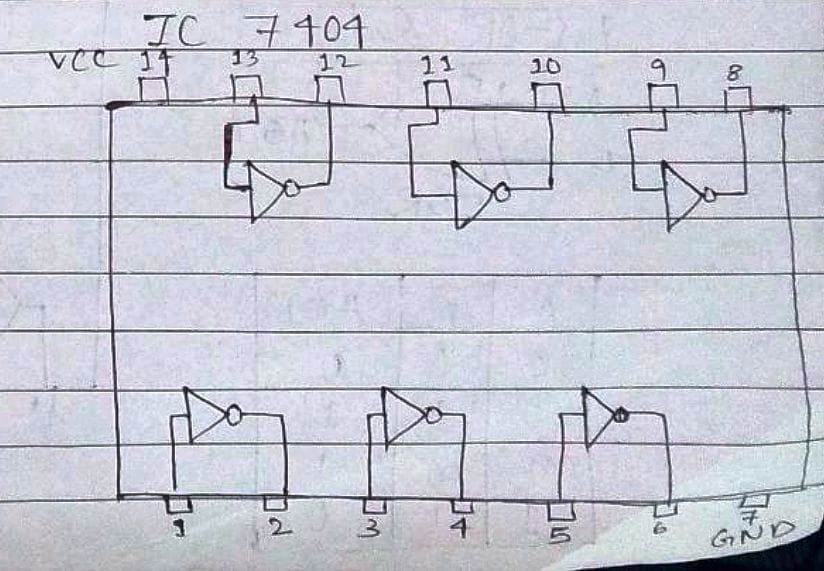 IC 7404
VCC 14 13 12 11 10 9 8
1 2 3 4 5 6 7
GND